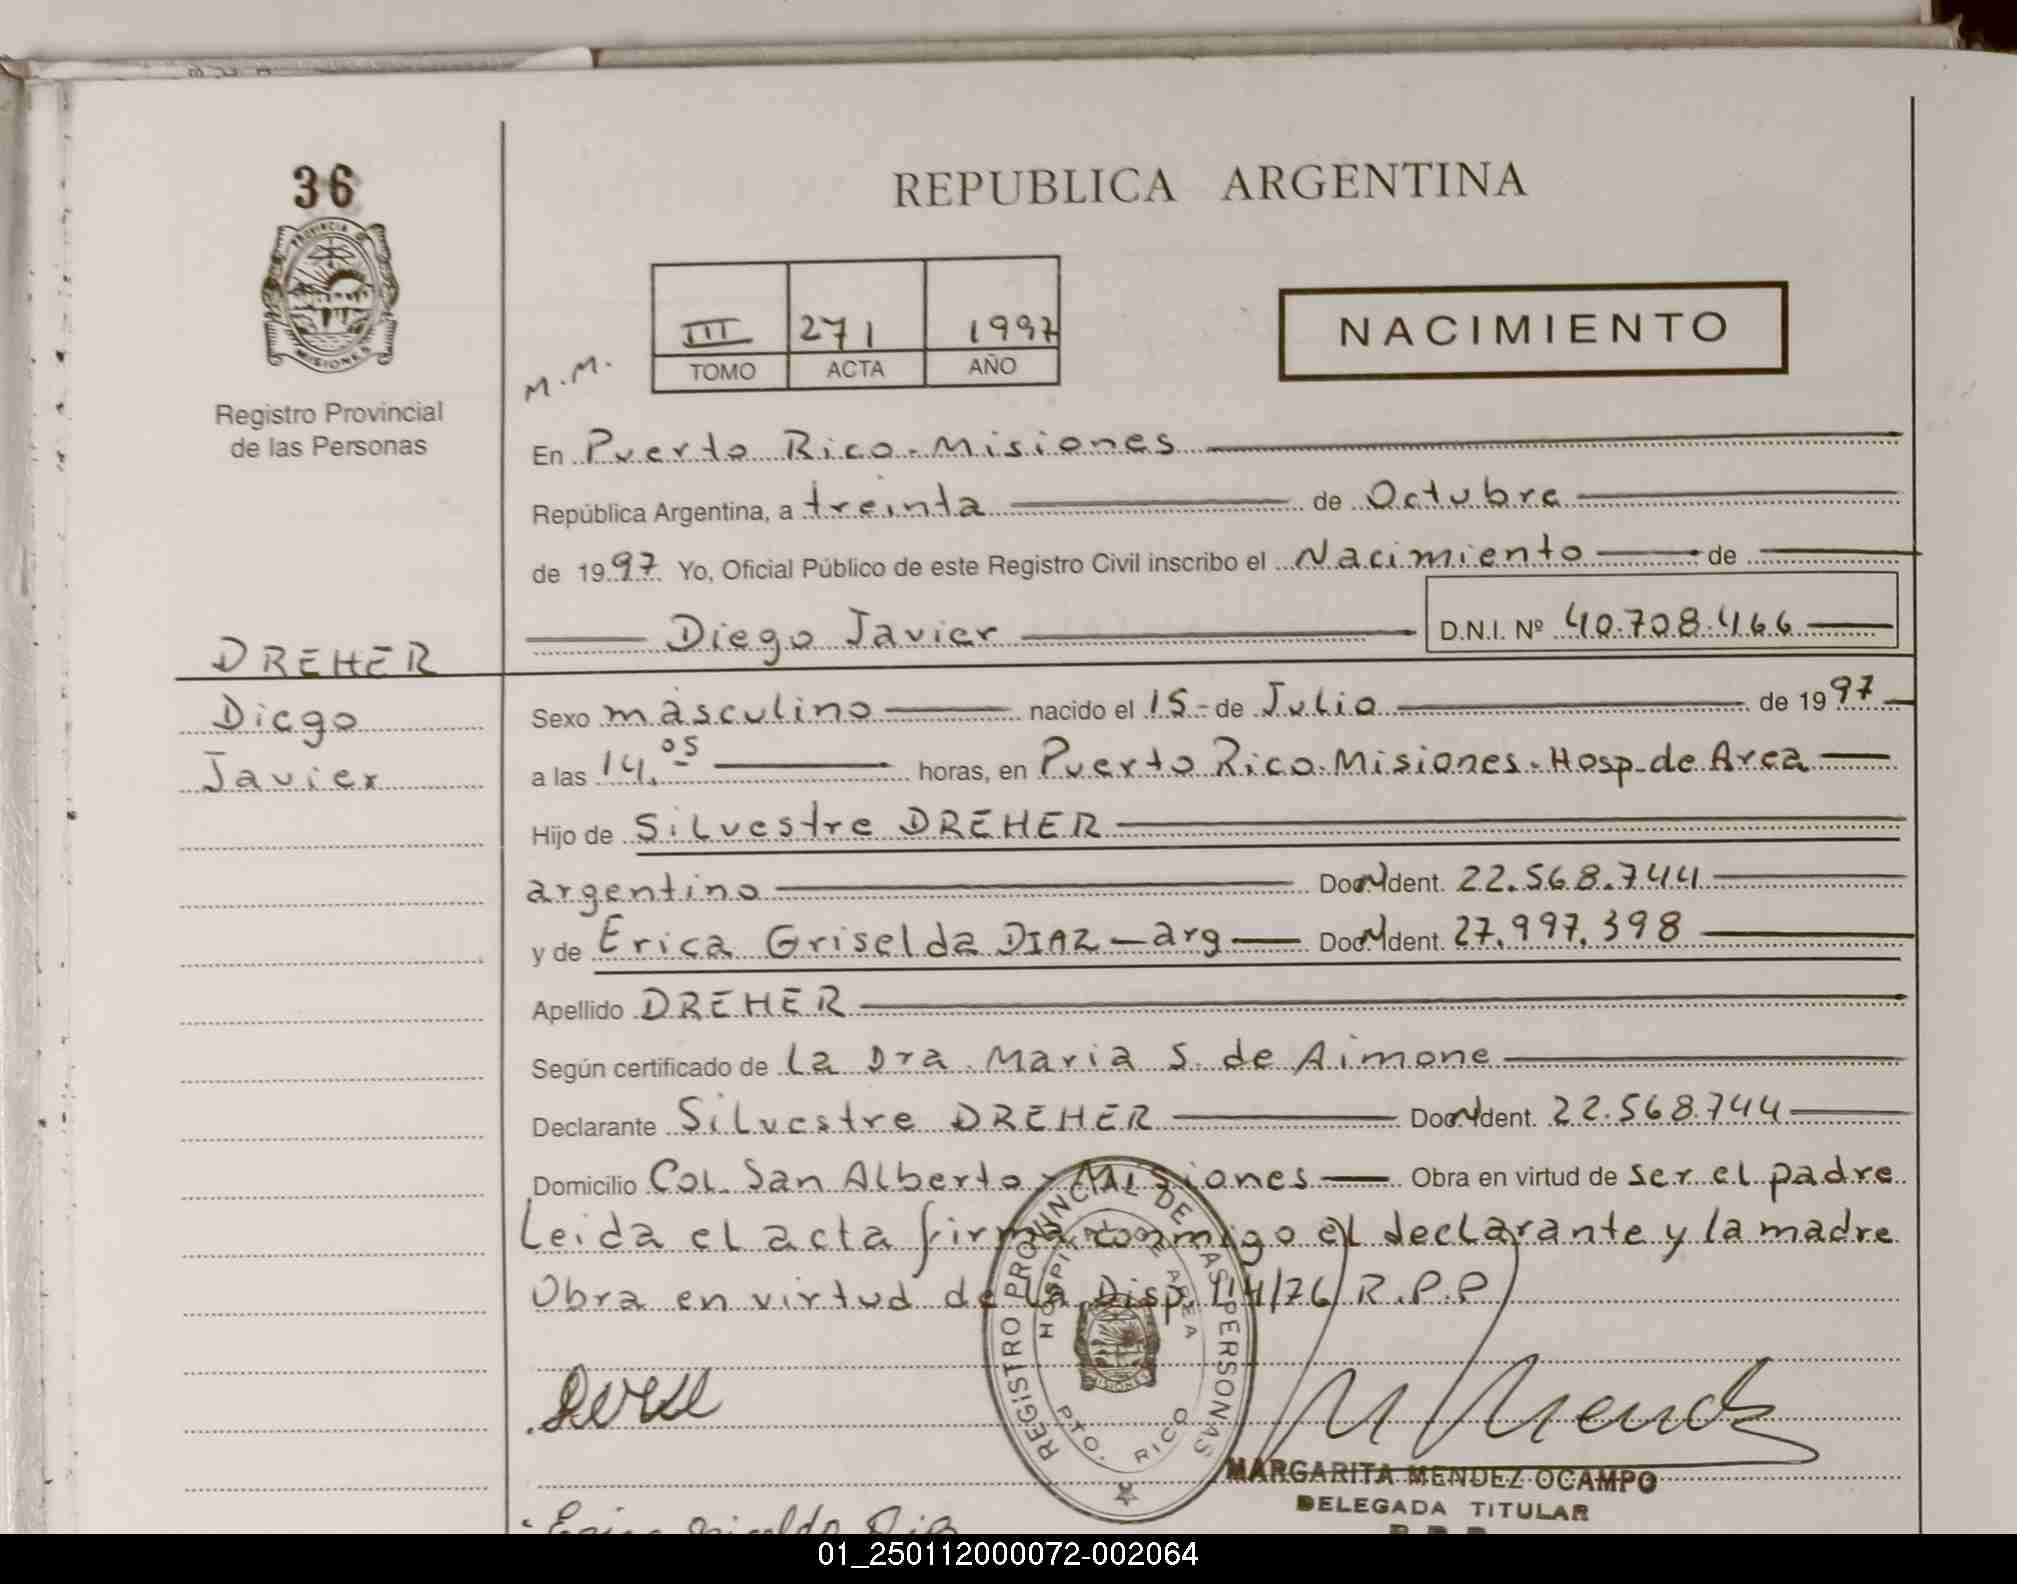 36
PROVINCIA DE
MISIONES
Registro Provincial
de las Personas
REPUBLICA ARGENTINA
III 271 1997
TOMO ACTA AÑO
NACIMIENTO
M.M.
En Puerto Rico - Misiones
República Argentina, a treinta de Octubre
de 1997 Yo, Oficial Público de este Registro Civil inscribo el Nacimiento de
Diego Javier D.N.I. Nº 40.708.466
DREHER
Diego
Javier
Sexo masculino nacido el 15 - de Julio de 1997
a las 14.05 horas, en Puerto Rico. Misiones. Hosp. de Area
Hijo de Silvestre DREHER
argentino Doc. Ident. 22.568.744
y de Erica Griselda DIAZ - arg Doc. Ident. 27.997.398
Apellido DREHER
Según certificado de La Dra Maria S. de Aimone
Declarante Silvestre DREHER Doc. Ident. 22.568.744
Domicilio Col. San Alberto - Misiones Obra en virtud de ser el padre
Leida el acta firma conmigo el declarante y la madre
Obra en virtud de la Disp. 114/76 R.P.P
REGISTRO PROVINCIAL DE LAS PERSONAS
HOSPITAL DE AREA
MISIONES
PTO. RICO
M Mendez
MARGARITA MENDEZ OCAMPO
DELEGADA TITULAR
R.P.P.
Erica Griselda Diaz
01_250112000072-002064